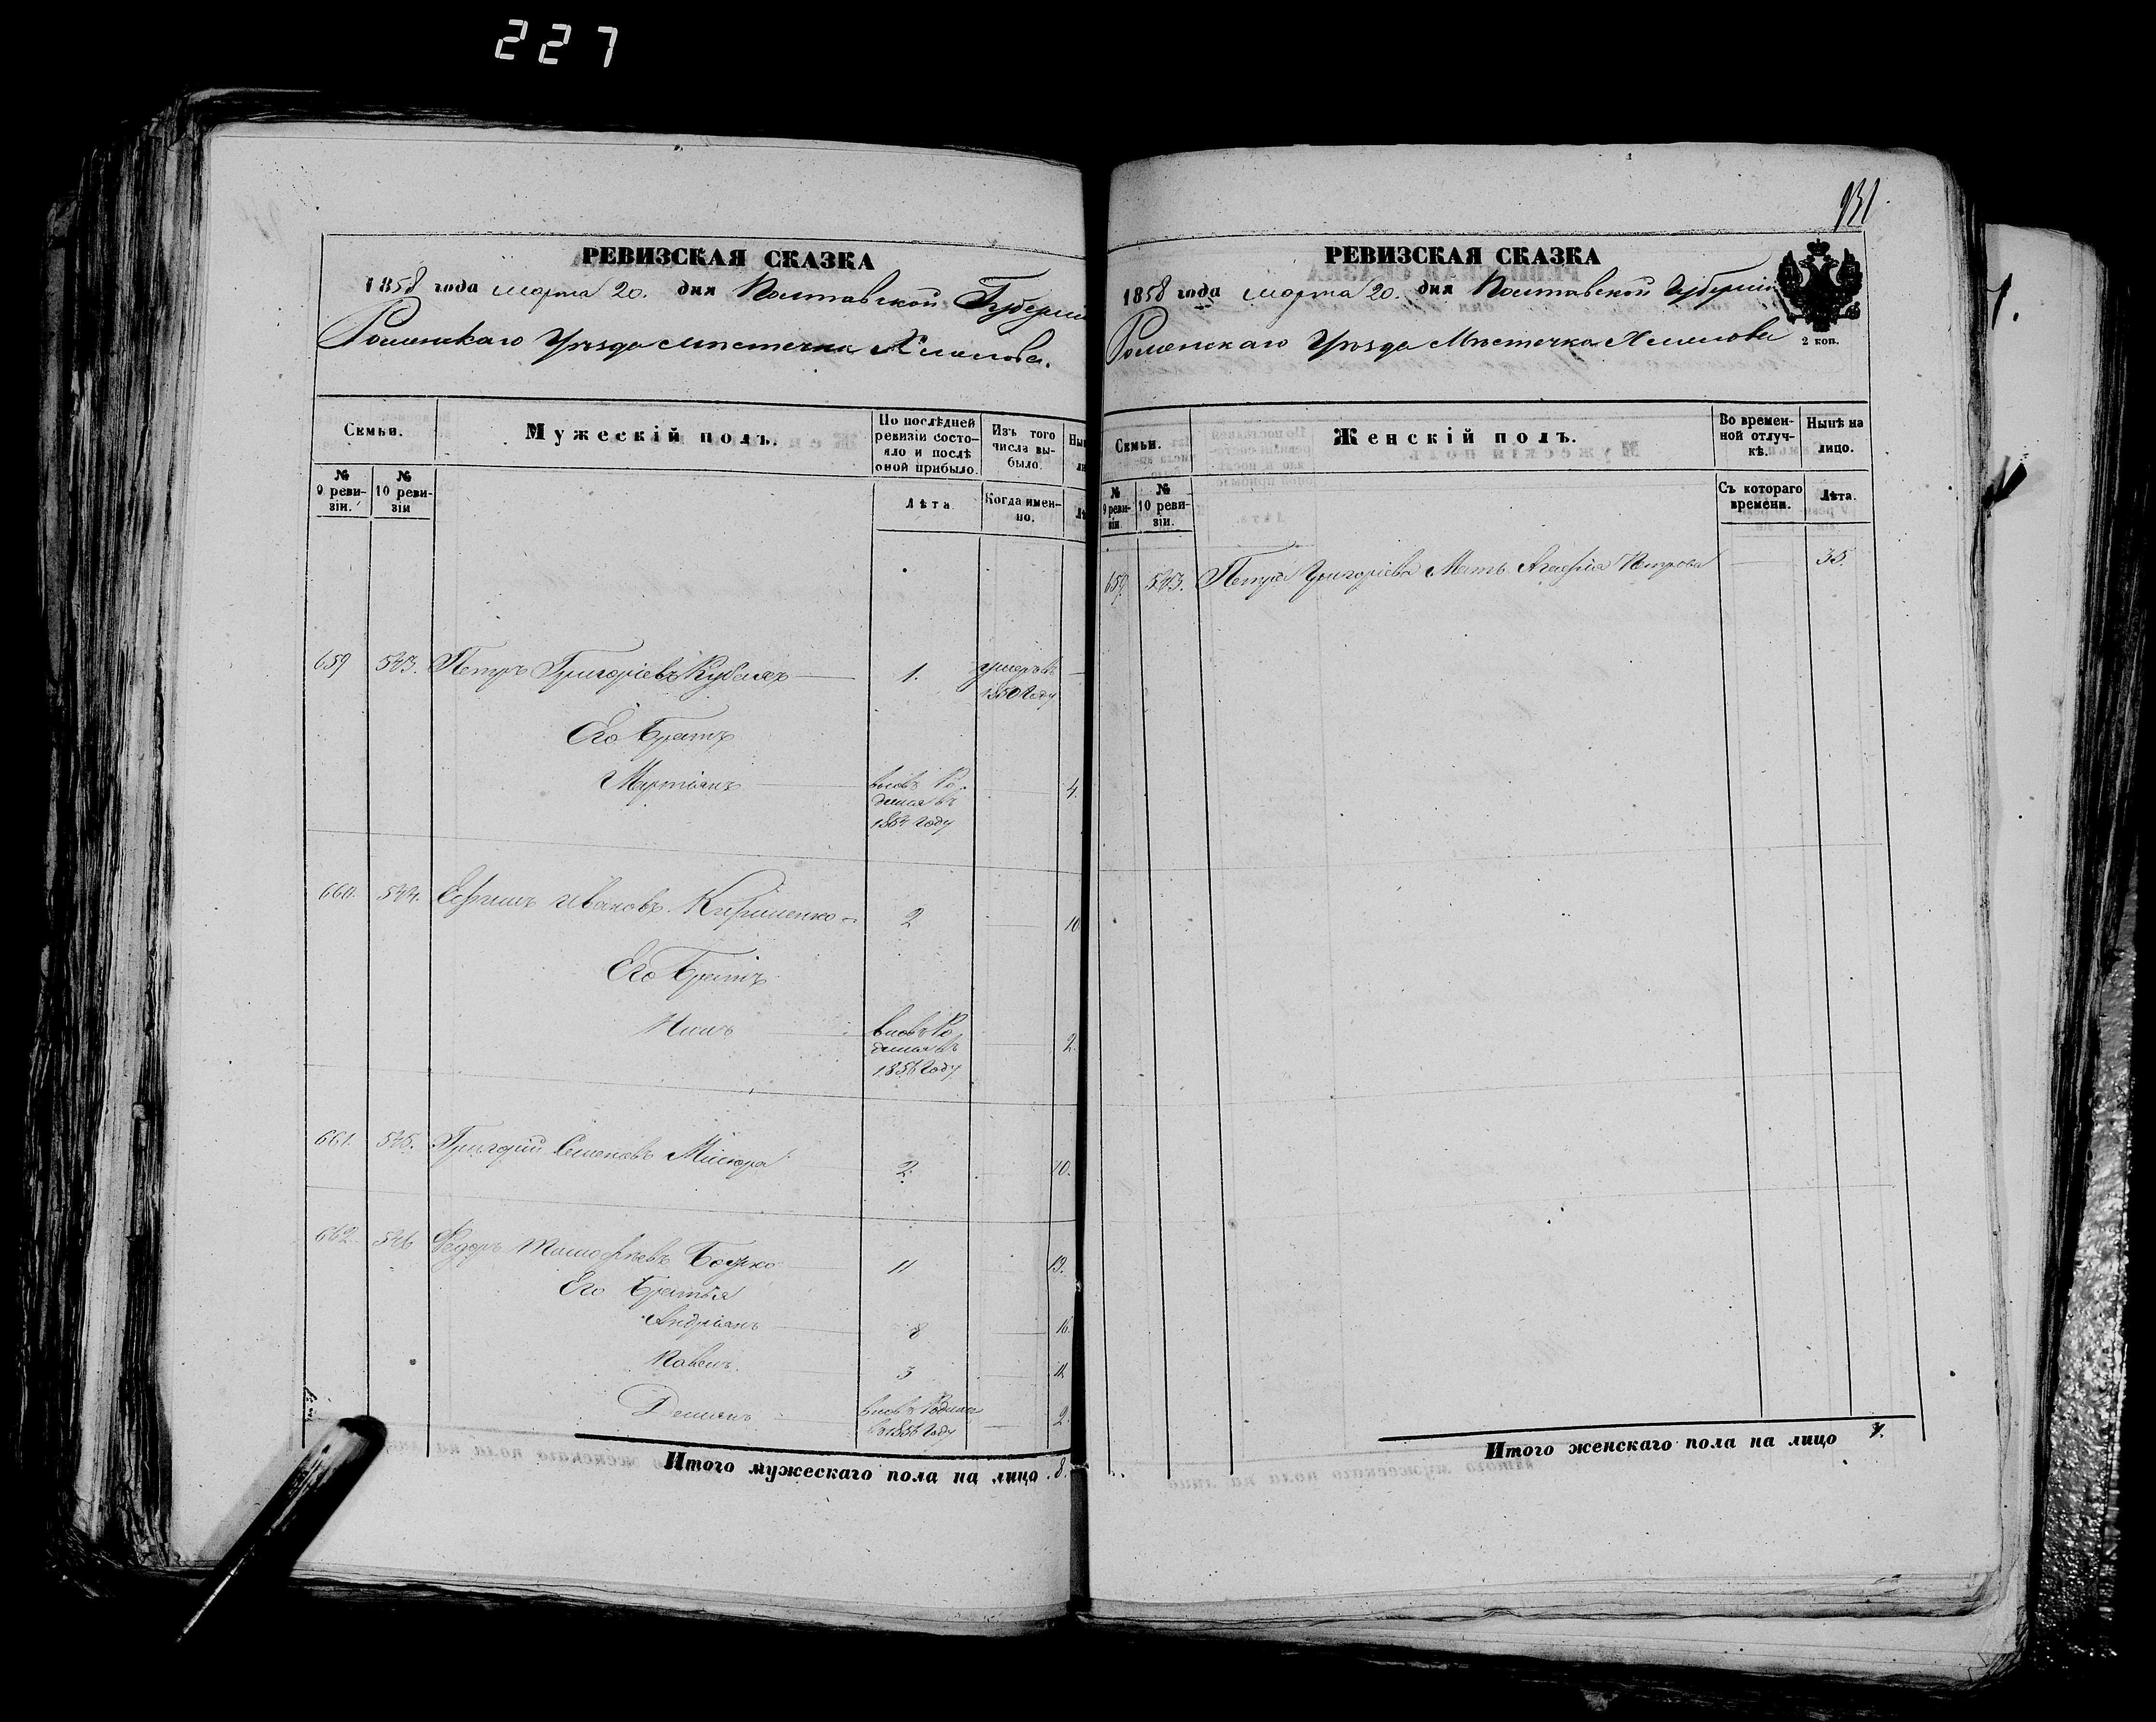 227
РЕВИЗСКАЯ СКАЗКА
1858 года марта 20. дня Полтавской Губерніи
Роменскаго Уѣзда мѣстечка Хмелова.
Семьи.
Мужескій полъ.
По послѣдней ревизіи состояло и послѣ оной прибыло.
Изъ того числа выбыло.
№ 9 ревизіи.
№ 10 ревизіи
Лѣта.
Когда именно.
659 543. Петръ Григоріевъ 1. умеръ въ 1850 Году
Его братъ
Мартынъ вновь родился въ 1854 году 4.
660. 544. Ефимъ Ивановъ Кириченко 2 10
Его братъ
вновь родился въ 1856 году 2.
661. 545. Григорій Семеновъ Мисюра 2. 10.
662. 546 Федоръ Тимофѣевъ Божко 11 19.
Его братья
Андріянъ 8 16.
Павелъ 3 11.
Демьянъ вновь родился въ 1856 году 2.
Итого мужескаго пола на лицо 8.
931
РЕВИЗСКАЯ СКАЗКА
1858 года марта 20. дня Полтавской Губерніи
Роменскаго Уѣзда Мѣстечка Хмелова
2 коп.
Семьи.
Женскій полъ.
Во временной отлучкѣ.
Нынѣ на лицо.
№ 9 ревизіи.
№ 10 ревизіи.
Съ котораго времени.
Лѣта.
659. 543. Петра Григоріева Мать Агафія Петрова 35.
Итого женскаго пола на лицо 1.